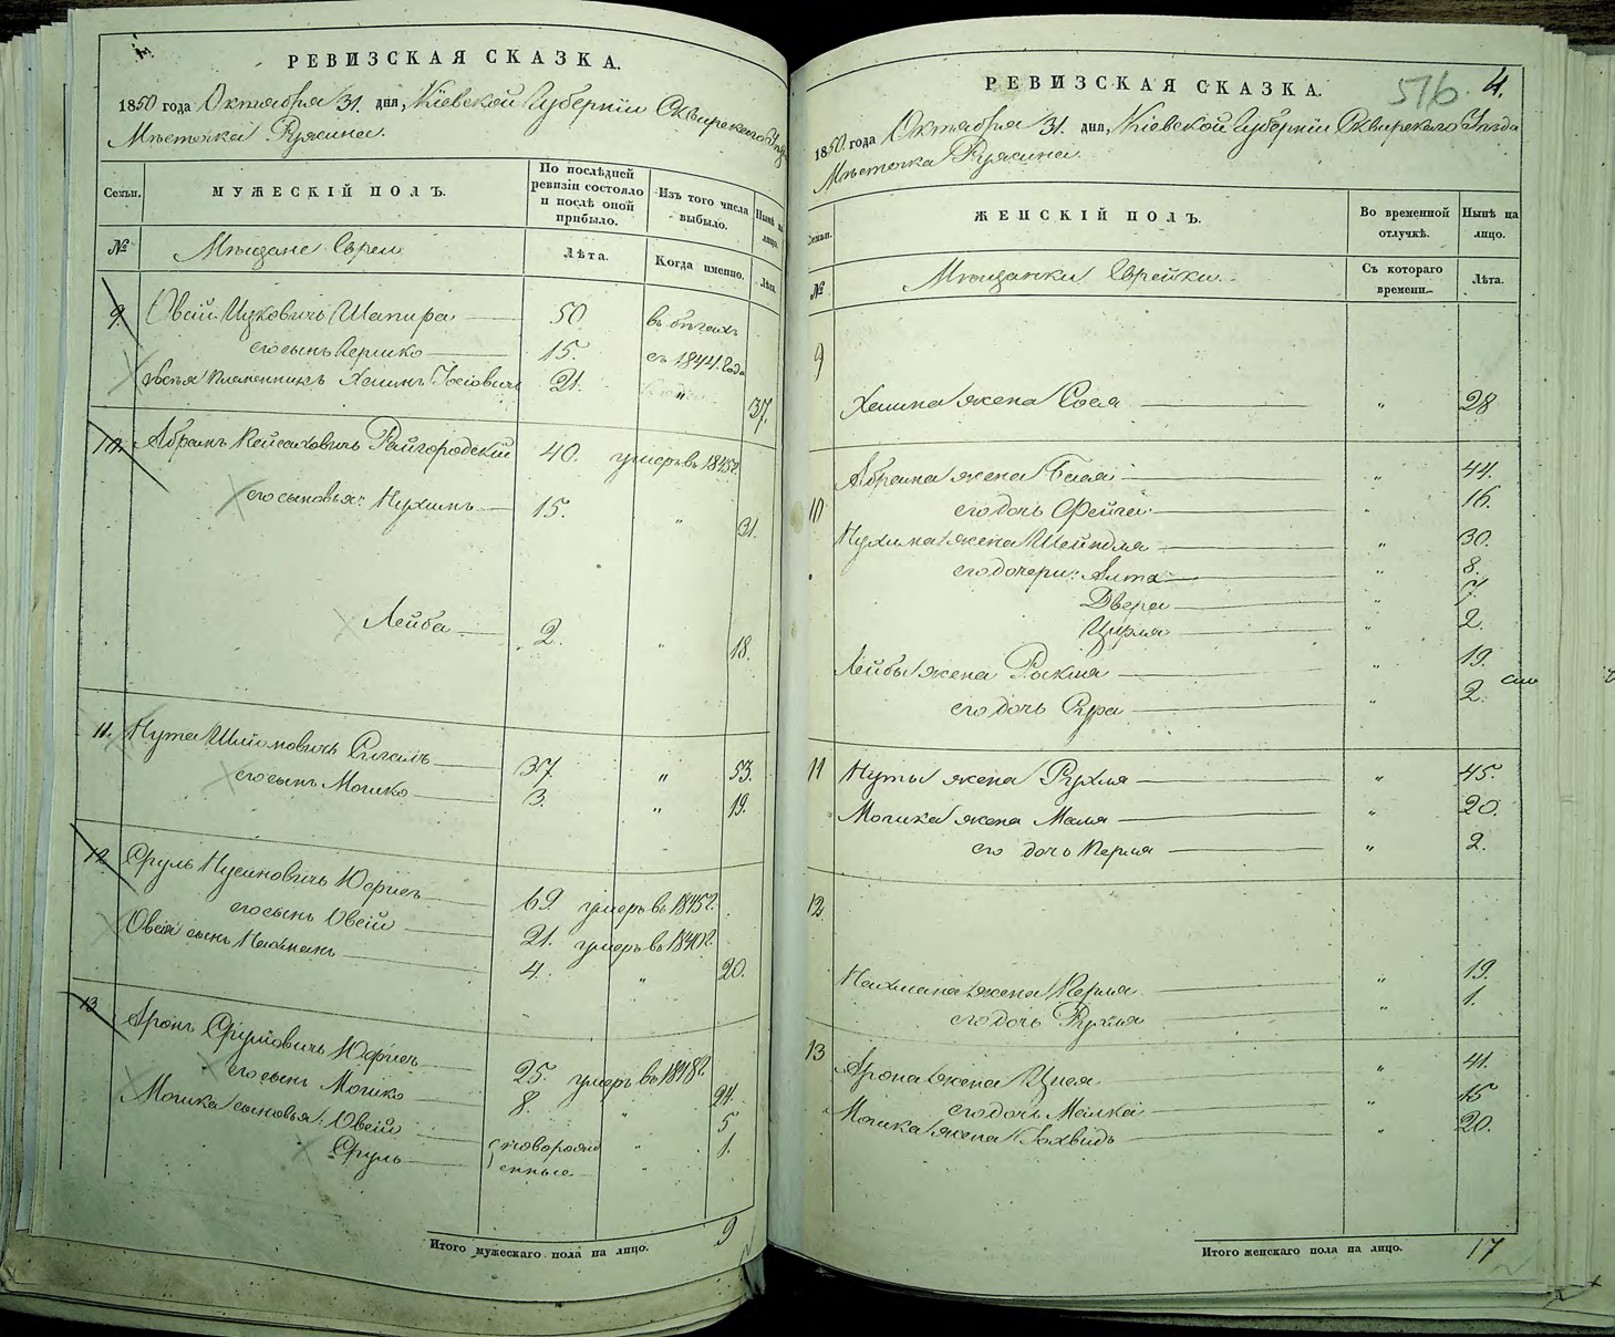 РЕВИЗСКАЯ СКАЗКА.
1850 года Октября 31. дня, Кіевской Губерніи Сквирскаго Уѣзда
Мѣстечка Ружина.
Семьи. МУЖЕСКІЙ ПОЛЪ. По послѣдней ревизіи состояло и послѣ оной прибыло. Изъ того числа выбыло. Нынѣ на лицо.
№ Мѣщане Евреи Лѣта. Когда именно. Лѣта.
9. Овсій Ицковичъ Шапира 50. въ бѣгахъ
его сынъ Гершко 15. съ 1844. года
племянникъ Хаимъ Іосіовичъ 21. " 37.
10. Абрамъ Пейсаховичъ Райгородскій 40. умеръ въ 1845 г.
его сыновья: Нухимъ 15. " 31.
Лейба 2. " 18.
11. Нута Шліомовичъ 37. " 53.
его сынъ Мошко 3. " 19.
12. Сруль Нусиновичъ 69. умеръ въ 1845 г.
его сынъ Овсій 21. умеръ въ 1840 г.
Овсія сынъ Нахманъ 4. " 20.
13. Аронъ Сруліовичъ 25. умеръ въ 1848 г.
его сынъ Мошко 8. " 24.
Мошка сыновья: Овсій новорожд " 5
Сруль енные " 1.
Итого мужескаго пола на лицо. 9
516. 4.
РЕВИЗСКАЯ СКАЗКА.
1850 года Октября 31. дня, Кіевской Губерніи Сквирскаго Уѣзда
Мѣстечка Ружина.
Семьи. ЖЕНСКІЙ ПОЛЪ. Во временной отлучкѣ. Нынѣ на лицо.
№ Мѣщанки Еврейки. Съ котораго времени. Лѣта.
9
Хаима жена Сося " 28
Абрама жена Бася " 44.
10 его дочь Фейга " 16.
Нухима жена Шейндля " 30.
его дочери: Алта " 8.
Двера " 7.
Цирля " 2.
Лейбы жена Рыкля " 19.
его дочь Сура " 2.
11 Нуты жена Рухля " 45.
Мошка жена Маля " 20.
его дочь Перля " 2.
12.
Нахмана жена Перля " 19.
его дочь Рухля " 1.
13 Арона жена " 41.
его дочь Малка " 15
Мошка жена " 20.
Итого женскаго пола на лицо. 17